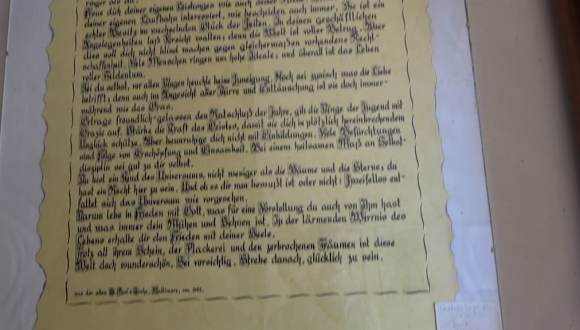 Freue dich deiner eigenen Leistungen wie auch deiner
deiner eigenen Laufbahn interessiert, wie bescheiden auch immer. Sie ist ein
echter Besitz im wechselnden Glück der Zeiten. In deinen geschäftlichen
Angelegenheiten laß Vorsicht walten; denn die Welt ist voller Betrug. Aber
dies soll dich nicht blind machen gegen gleichermaßen vorhandene Recht-
schaffenheit. Viele Menschen ringen um hohe Ideale; und überall ist das Leben
voller Heldentum.
Sei du selbst, vor allen Dingen heuchle keine Zuneigung. Noch sei zynisch was die Liebe
betrifft, denn auch im Angesicht aller Dürre und Enttäuschung ist sie doch immer-
während wie das Gras.
Ertrage freundlich-gelassen den Ratschluß der Jahre, gib die Dinge der Jugend mit
Grazie auf. Stärke die Kraft des Geistes, damit sie dich in plötzlich hereinbrechendem
Unglück schütze. Aber beunruhige dich nicht mit Einbildungen. Viele Befürchtungen
sind Folge von Erschöpfung und Einsamkeit. Bei einem heilsamen Maß an Selbst-
disziplin sei gut zu dir selbst.
Du bist ein Kind des Universums, nicht weniger als die Bäume und die Sterne, du
hast ein Recht hier zu sein. Und ob es dir nun bewußt ist oder nicht: Zweifellos ent-
faltet sich das Universum wie vorgesehen.
Darum lebe in Frieden mit Gott, was für eine Vorstellung du auch von Ihm hast
und was immer dein Mühen und Sehnen ist. In der lärmenden Wirrnis des
Lebens erhalte dir den Frieden mit deiner Seele.
Trotz all ihrem Schein, der Plackerei und den zerbrochenen Träumen ist diese
Welt doch wunderschön. Sei vorsichtig. Strebe danach, glücklich zu sein.
aus der alten St. Paul's Kirche, Baltimore, von 1692.